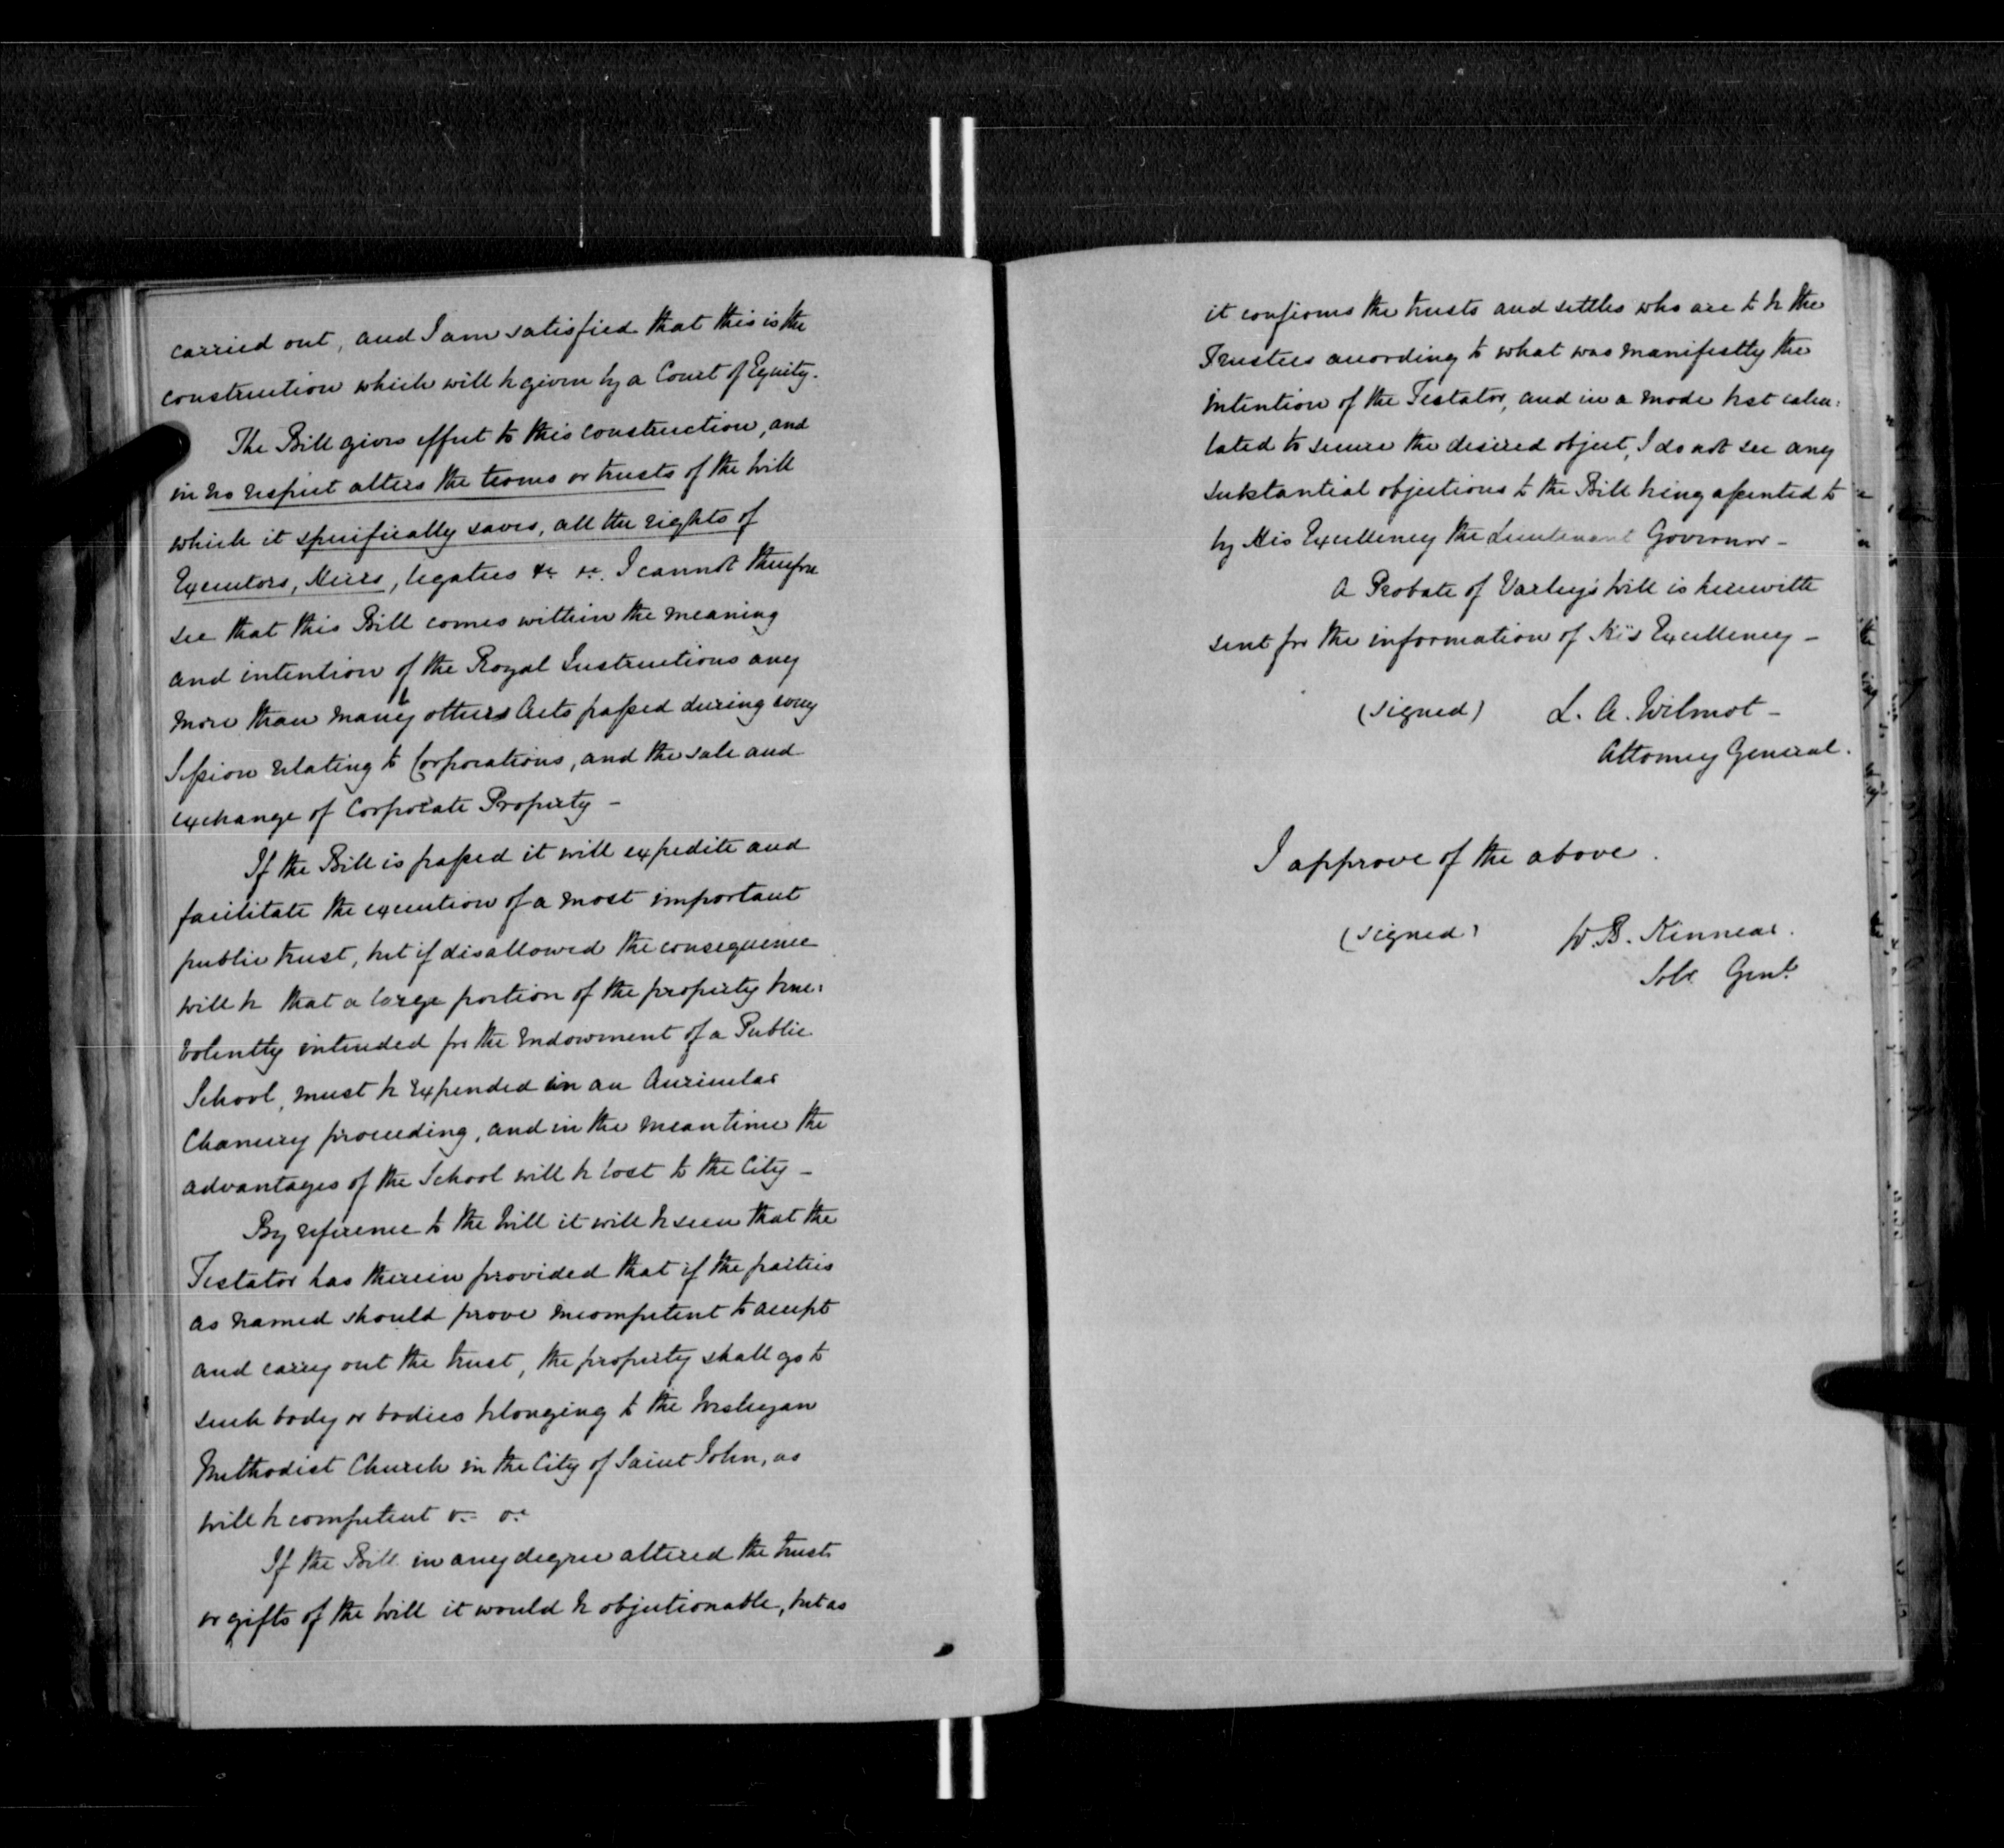 carried out, and I am satisfied that this is the
construction which will be given by a Court of Equity.
The Bill gives effect to this construction, and
in no respect alters the terms or trusts of the Will
which it specifically saves, all the rights of
Executors, Heirs, legatees &c &c. I cannot therefore
see that this Bill comes within the meaning
and intention of the Royal Instructions any
more than many others Acts passed during every
Session relating to Corporations, and the sale and
exchange of Corporate Property -
If the Bill is passed it will expedite and
facilitate the execution of a most important
public trust, but if disallowed the consequence
will be that a large portion of the property bene:
volently intended for the endowment of a Public
School, must be expended in an
Chancery proceeding, and in the mean time the
advantages of the School will be lost to the City -
By reference to the Will it will be seen that the
Testator has therein provided that if the parties
as named should prove incompetent to accept
and carry out the trust, the property shall go to
such body or bodies belonging to the Wesleyan
Methodist Church in the City of Saint John, as
will be competent &c &c
If the Bill in any degree altered the trusts
or gifts of the Will it would be objectionable, but as
it confirms the trusts and settles who are to be the
Trustees according to what was manifestly the
intention of the Testator, and in a mode best calcu:
lated to secure the desired object, I do not see any
substantial objections to the Bill being assented to
by His Excellency the Lieutenant Governor -
A Probate of Varley's Will is herewith
sent for the information of His Excellency -
(signed) L. A. Wilmot -
Attorney General.
I approve of the above.
(signed) W. B. Kinnear.
Solr Genl.